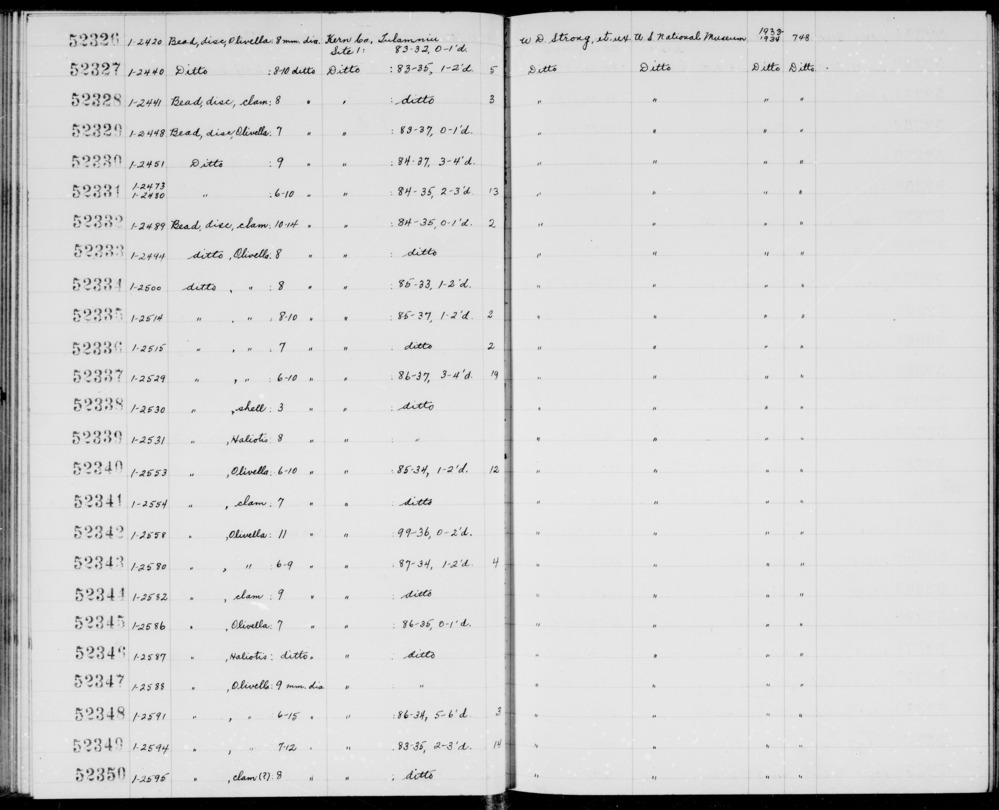 52326 1-2420 Bead, disc, Olivella: 8 mm. dia. Kern Co., Tulamniu W D Strong, et. ux. U S National Museum 1933- 748
Site 1: 83-32, 0-1'd. 1934
52327 1-2440 Ditto : 8-10 ditto Ditto : 83-35, 1-2'd. 5 Ditto Ditto Ditto Ditto
52328 1-2441 Bead, disc, clam: 8 " " : ditto 3 " " " "
52329 1-2448 Bead, disc, Olivella: 7 " " : 83-37, 0-1'd. " " " "
52330 1-2451 Ditto : 9 " " : 84-37, 3-4'd. " " " "
52331 1-2473 1-2480 " : 6-10 " " : 84-35, 2-3'd. 13 " " " "
52332 1-2489 Bead, disc, clam: 10-14 " " : 84-35, 0-1'd. 2 " " " "
52333 1-2494 ditto, Olivella: 8 " " : ditto " " " "
52334 1-2500 ditto, " : 8 " " : 85-33, 1-2'd. " " " "
52335 1-2514 " , " : 8-10 " " : 85-37, 1-2'd. 2 " " " "
52336 1-2515 " , " : 7 " " : ditto 2 " " " "
52337 1-2529 " , " : 6-10 " " : 86-37, 3-4'd. 19 " " " "
52338 1-2530 " , shell: 3 " " : ditto " " " "
52339 1-2531 " , Haliotis: 8 " " : " " " " "
52340 1-2553 " , Olivella: 6-10 " " : 85-34, 1-2'd. 12 " " " "
52341 1-2554 " , clam: 7 " " : ditto " " " "
52342 1-2558 " , Olivella: 11 " " : 99-36, 0-2'd. " " " "
52343 1-2580 " , " : 6-9 " " : 87-34, 1-2'd. 4 " " " "
52344 1-2582 " , clam: 9 " " : ditto " " " "
52345 1-2586 " , Olivella: 7 " " : 86-35, 0-1'd. " " " "
52346 1-2587 " , Haliotis: ditto " " : ditto " " " "
52347 1-2588 " , Olivella: 9 mm. dia " : " " " " "
52348 1-2591 " , " : 6-15 " " : 86-34, 5-6'd. 3 " " " "
52349 1-2594 " , " : 7-12 " " : 83-35, 2-3'd. 14 " " " "
52350 1-2595 " , clam(?): 8 " " : ditto " " " "